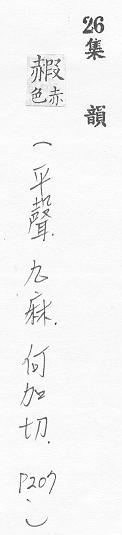 26集韻
赮赤色
（平聲．九麻．何加切．P207．）